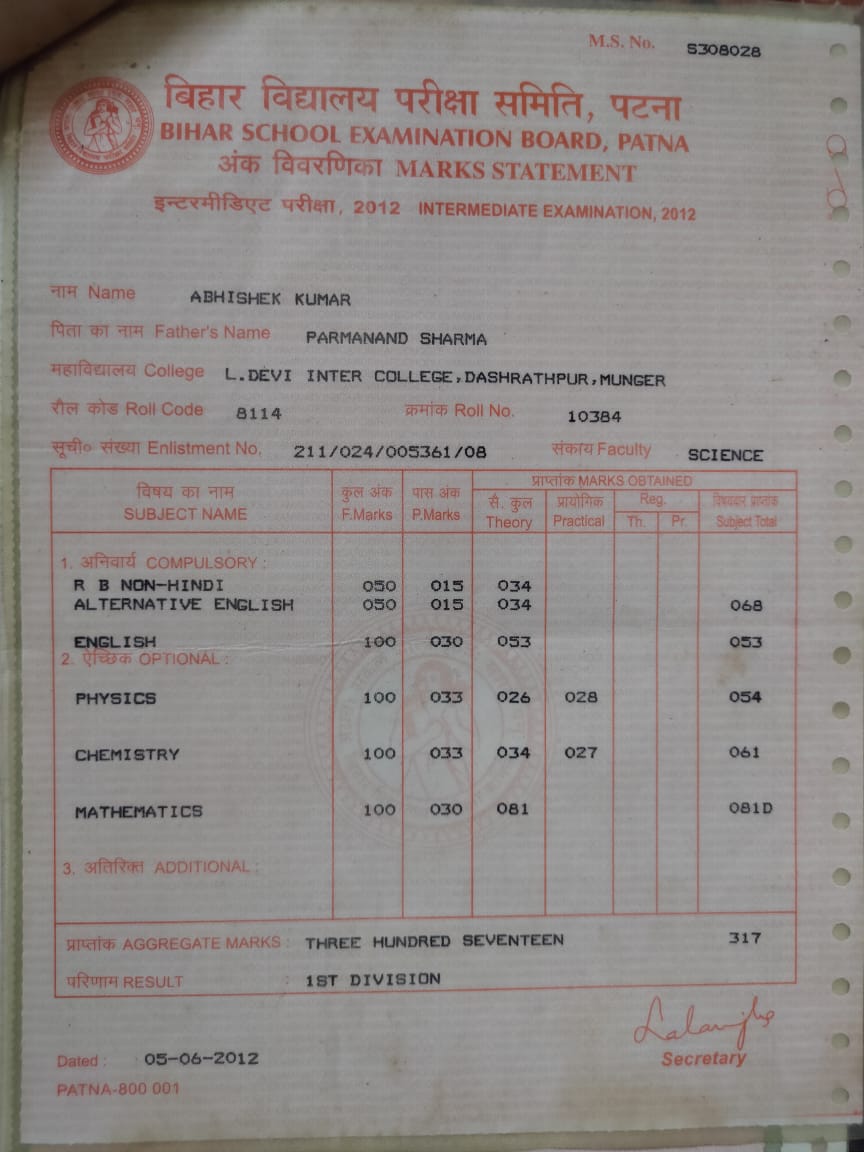 M.S. No. S308028
बिहार विद्यालय परीक्षा समिति, पटना
BIHAR SCHOOL EXAMINATION BOARD, PATNA
अंक विवरणिका MARKS STATEMENT
इन्टरमीडिएट परीक्षा, 2012 INTERMEDIATE EXAMINATION, 2012
नाम Name ABHISHEK KUMAR
पिता का नाम Father's Name PARMANAND SHARMA
महाविद्यालय College L.DEVI INTER COLLEGE,DASHRATHPUR,MUNGER
रौल कोड Roll Code 8114 क्रमांक Roll No. 10384
सूची० संख्या Enlistment No. 211/024/005361/08 संकाय Faculty SCIENCE
प्राप्तांक MARKS OBTAINED
विषय का नाम कुल अंक पास अंक सै. कुल प्रायोगिक Reg. विषयवार प्राप्तांक
SUBJECT NAME F.Marks P.Marks Theory Practical Th. Pr. Subject Total
1. अनिवार्य COMPULSORY :
R B NON-HINDI 050 015 034
ALTERNATIVE ENGLISH 050 015 034 068
ENGLISH 100 030 053 053
2. ऐच्छिक OPTIONAL :
PHYSICS 100 033 026 028 054
CHEMISTRY 100 033 034 027 061
MATHEMATICS 100 030 081 081D
3. अतिरिक्त ADDITIONAL :
प्राप्तांक AGGREGATE MARKS : THREE HUNDRED SEVENTEEN 317
परिणाम RESULT : 1ST DIVISION
Dated : 05-06-2012 Secretary
PATNA-800 001